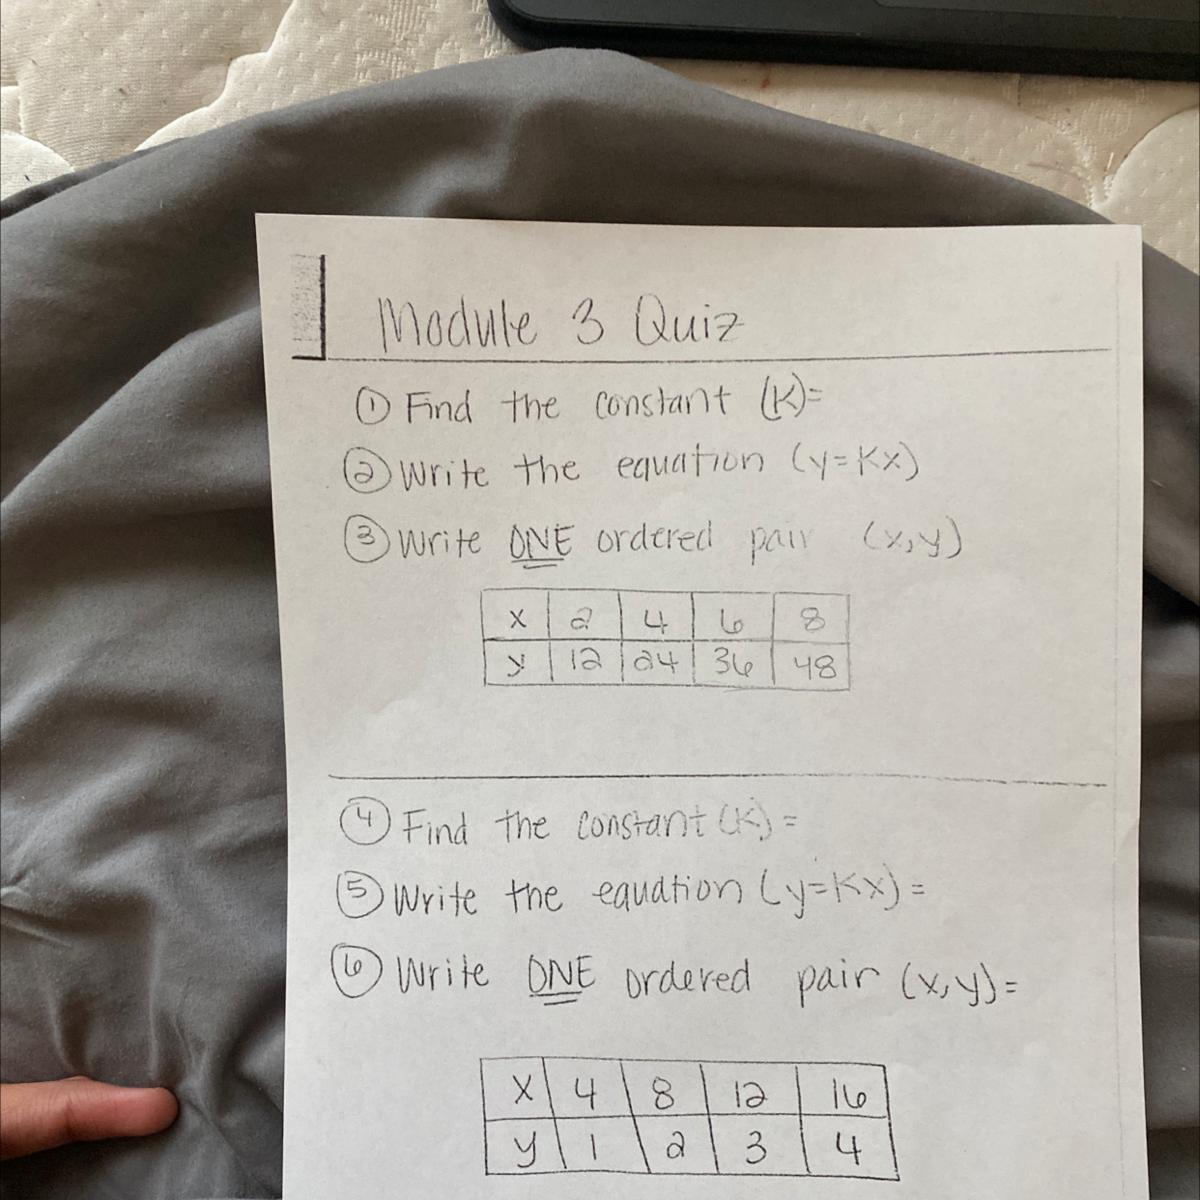 Module 3 Quiz
① Find the constant (K)=
② Write the equation (y=Kx)
③ Write ONE ordered pair (x,y)
x 2 4 6 8
y 12 24 36 48
④ Find the constant (K) =
⑤ Write the equation (y=Kx) =
⑥ Write ONE ordered pair (x,y)=
X 4 8 12 16
y 1 2 3 4